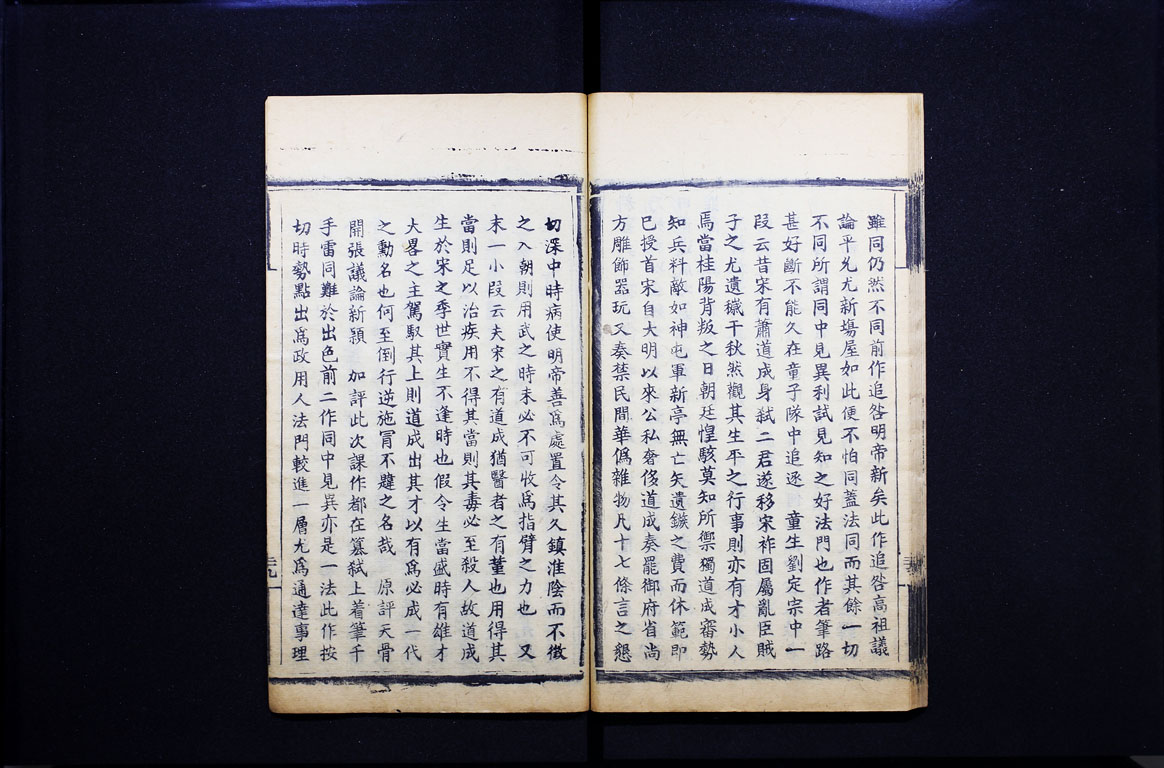 雖同仍然不同前作追咎明帝新矣此作追咎高祖議
論平允尤新塲屋如此便不怕同蓋法同而其餘一切
不同所謂同中見異利試見知之好法門也作者筆路
甚好斷不能久在童子隊中追逐　童生劉定宗中一
段云昔宋有蕭道成身弑二君遂移宋祚固屬亂臣賊
子之尤遺穢千秋然觀其生平之行事則亦有才小人
焉當桂陽背叛之日朝廷惶駭莫知所禦獨道成審勢
知兵料敵如神屯軍新亭無亡矢遺鏃之費而休範即
已授首宋自大明以來公私奢侈道成奏罷御府省尚
方雕飾器玩又奏禁民間華僞雜物凡十七條言之懇
切深中時病使明帝善爲處置令其久鎮淮陰而不徵
之入朝則用武之時未必不可收爲指臂之力也　又
末一小段云夫宋之有道成猶醫者之有菫也用得其
當則足以治疾用不得其當則其毒必至殺人故道成
生於宋之季世實生不逢時也假令生當盛時有雄才
大畧之主駕馭其上則道成出其才以有爲必成一代
之勳名也何至倒行逆施冐不韙之名哉　原評天骨
開張議論新穎　加評此次課作都在簒弑上着筆千
手雷同難於出色前二作同中見異亦是一法此作按
切時勢點出爲政用人法門較進一層尤爲通達事理